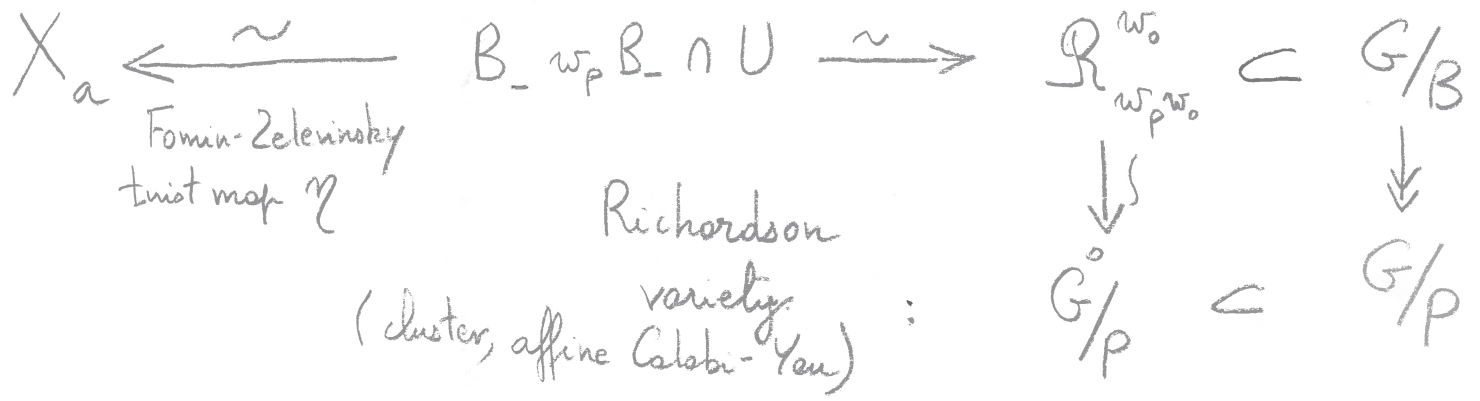 X_a ←∼ B_- w_p B_- ∩ U ∼→ R^{w_0}_{w_p w_0} ⊂ G/B
Fomin-Zelevinsky
twist map η
Richardson
variety
(cluster, affine Calabi-Yau) : G°/P ⊂ G/P